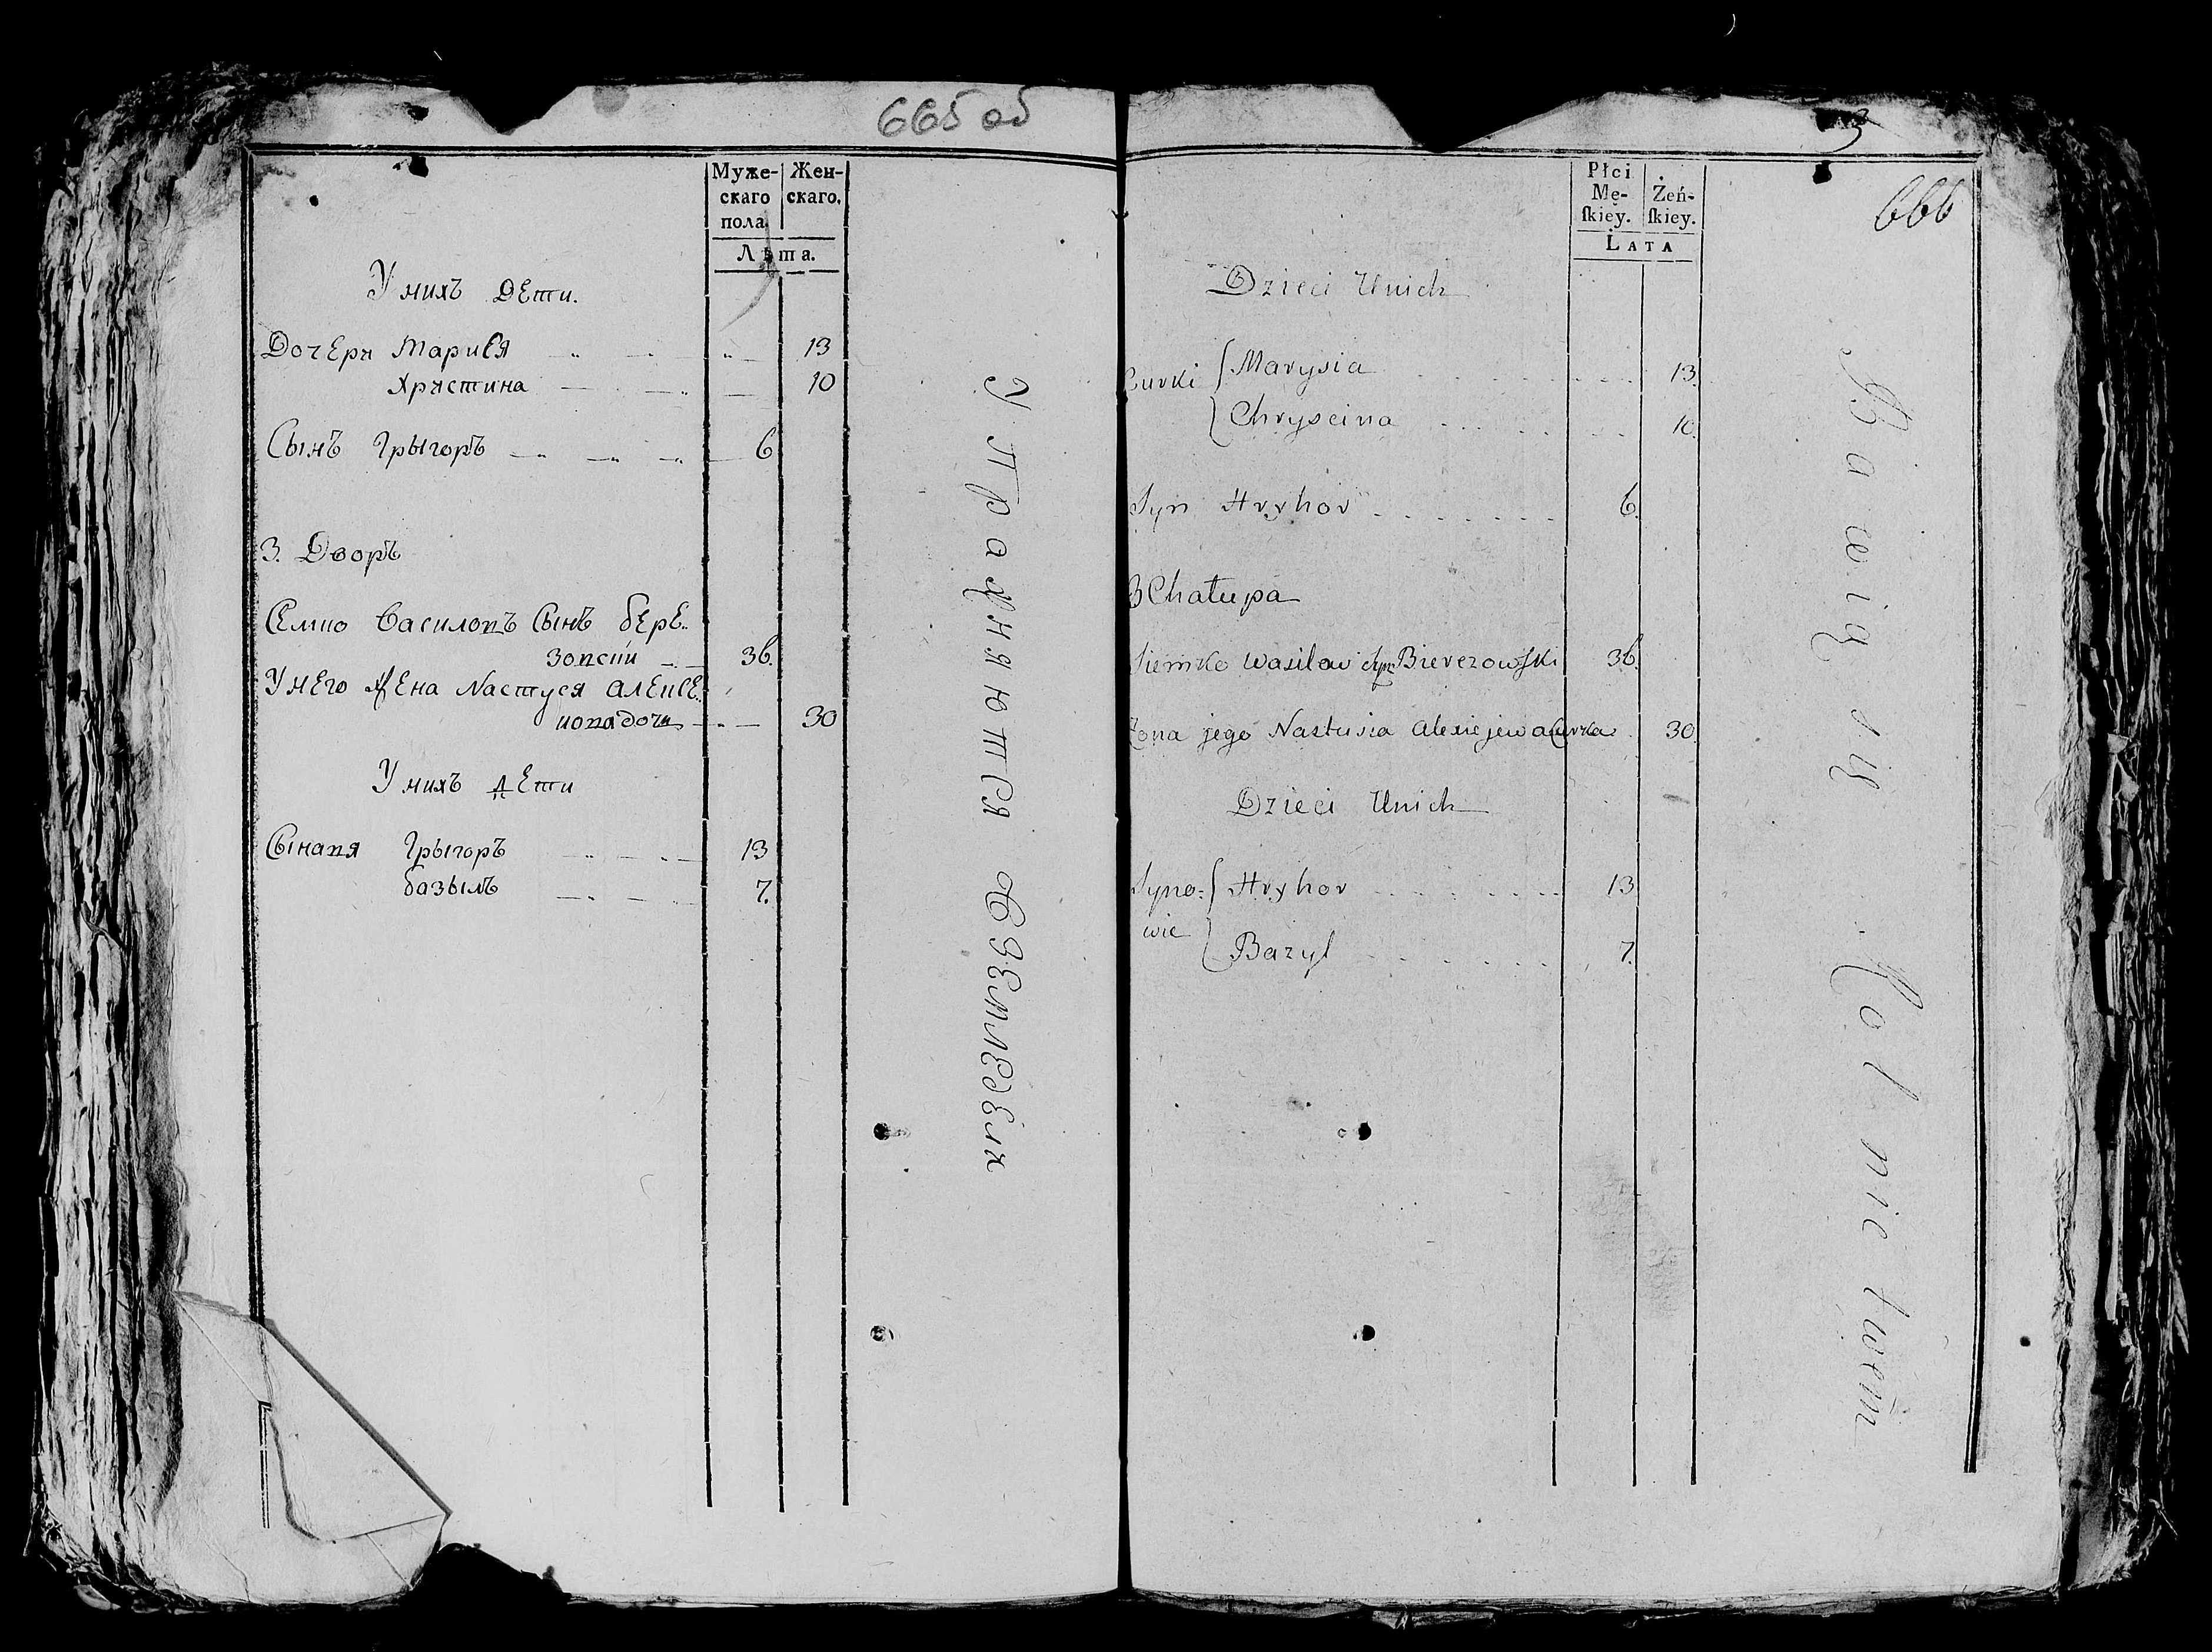 665 об
Муже-
скаго
пола.
Жен-
скаго.
Лѣта.
У нихъ дети.
Дочери Марися 13
Христина 10
Сынъ Грыгоръ 6
3. Дворъ
Семко Василовъ Сынъ бере-
зовскии 36.
У него жена Настуся алексе-
пова дочи 30
У нихъ дети
Сыновя Грыгоръ 13
базыль 7.
Упражняются Хземледели
3
666
Płci
Mę-
ſkiey.
Żeń-
ſkiey.
LATA
Dzieci Unich
Curki Marysia 13.
Chryscina 10.
Syn Hryhor 6.
3 Chałupa
Siemko Wasilow Syn Bierezowſki 36.
Żona jego Nastusia Alexiejewa Curka 30.
Dzieci Unich
Syno= Hryhor 13
wie
Bazyl 7.
Bawią się Rolnictwem